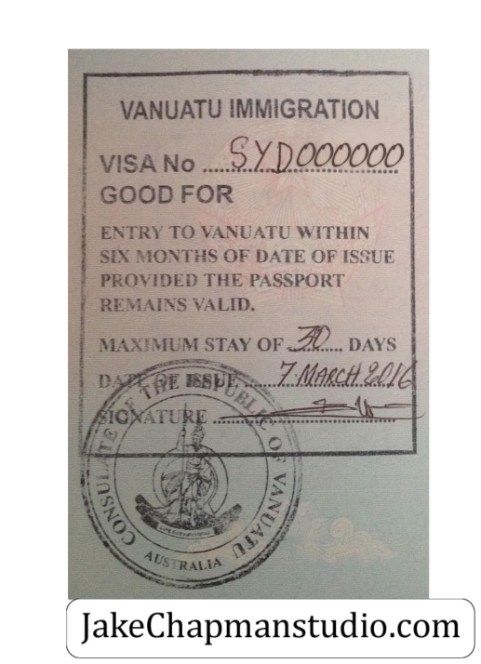 VANUATU IMMIGRATION
VISA No ........ SYD000000
GOOD FOR
ENTRY TO VANUATU WITHIN
SIX MONTHS OF DATE OF ISSUE
PROVIDED THE PASSPORT
REMAINS VALID.
MAXIMUM STAY OF 30 ..... DAYS
DATE OF ISSUE ..... 7. MARCH 2016
SIGNATURE ..............................
CONSULATE OF THE REPUBLIC OF VANUATU
AUSTRALIA
JakeChapmanstudio.com